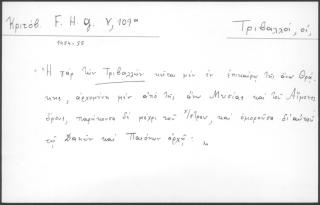 Κριτόβ. F. H. G. V, 109ᵃ
Τριβαλλοί, οἱ,
1454-55
"Ἡ γὰρ τῶν Τριβαλλῶν κεῖται μὲν ἐν ἐπικαίρῳ τῆς ἄνω Θρᾴ-
κης, ἀρχομένη μὲν ἀπὸ τῆς ἄνω Μυσίας καὶ τοῦ Αἵμου
ὄρους, παρήκουσα δὲ μέχρι τοῦ Ἴστρου, καὶ ὁμοροῦσα δι' αὐτοῦ
τῇ Δακῶν καὶ Παιόνων ἀρχῇ·